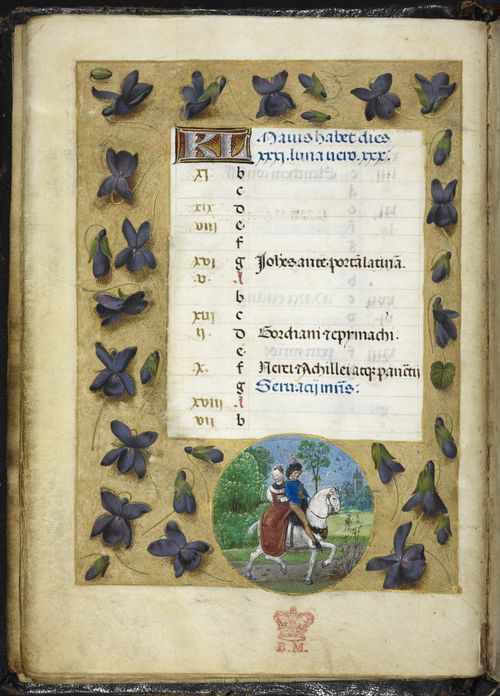 KL Maius habet dies
xxxi. luna vero. xxx.
xi b
c
xix D
viii e
f
xvi g Johes ante portā latinā.
v. A
b
xiii c
ii D Gordiani ⁊ epymachi.
e
x. f Nerei ⁊ Achillei atq; pancrij
g Servacij
xviii A
vii b
B.M.